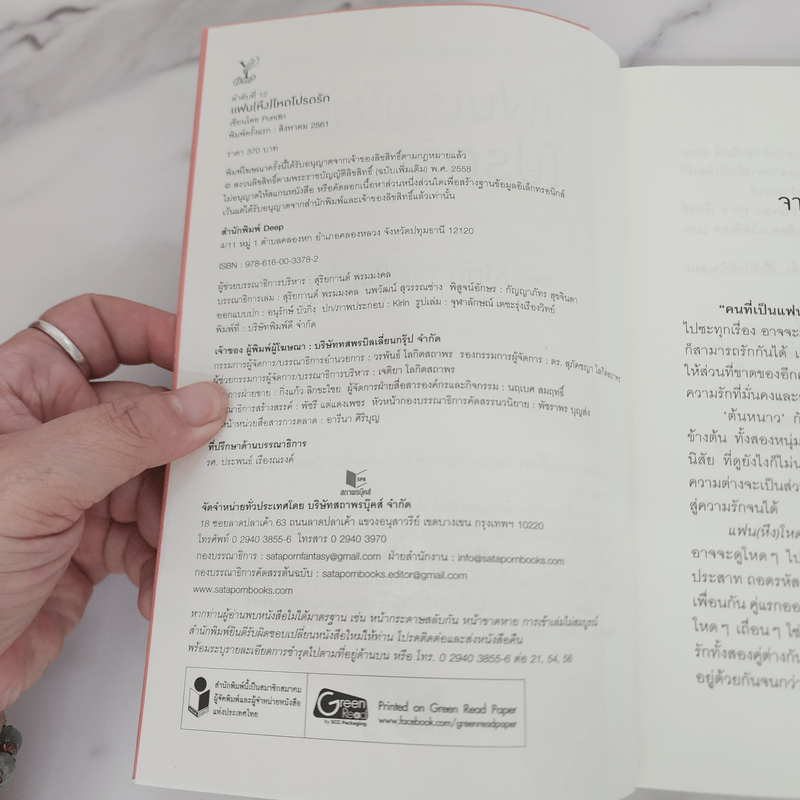 Deep
ลำดับที่ 12
แฟน(หึง)โหดโปรดรัก
เขียนโดย Pundin
พิมพ์ครั้งแรก : สิงหาคม 2561
ราคา 370 บาท
พิมพ์โฆษณาครั้งนี้ได้รับอนุญาตจากเจ้าของลิขสิทธิ์ตามกฎหมายแล้ว
© สงวนลิขสิทธิ์ตามพระราชบัญญัติลิขสิทธิ์ (ฉบับเพิ่มเติม) พ.ศ. 2558
ไม่อนุญาตให้สแกนหนังสือ หรือคัดลอกเนื้อหาส่วนหนึ่งส่วนใดเพื่อสร้างฐานข้อมูลอิเล็กทรอนิกส์
เว้นแต่ได้รับอนุญาตจากสำนักพิมพ์และเจ้าของลิขสิทธิ์แล้วเท่านั้น
สำนักพิมพ์ Deep
4/11 หมู่ 1 ตำบลคลองหก อำเภอคลองหลวง จังหวัดปทุมธานี 12120
ISBN : 978-616-00-3378-2
ผู้ช่วยบรรณาธิการบริหาร : สุริยกานต์ พรมมงคล
บรรณาธิการเล่ม : สุริยกานต์ พรมมงคล นพวัฒน์ สุวรรณช่าง พิสูจน์อักษร : กัญญาภัทร สุขจินดา
ออกแบบปก : อนุรักษ์ บัวกิ่ง ปก/ภาพประกอบ : Kirin รูปเล่ม : จุฬาลักษณ์ เดชะรุ่งเรืองวิทย์
พิมพ์ที่ : บริษัทพิมพ์ดี จำกัด
เจ้าของ ผู้พิมพ์ผู้โฆษณา : บริษัททสพรบิลเลี่ยนกรุ๊ป จำกัด
กรรมการผู้จัดการ/บรรณาธิการอำนวยการ : วรพันธ์ โลกิตสถาพร รองกรรมการผู้จัดการ : ดร. สุภัคชญา โลกิตสถาพร
ผู้ช่วยกรรมการผู้จัดการ/บรรณาธิการบริหาร : เจติยา โลกิตสถาพร
การฝ่ายขาย : กิ่งแก้ว ลิกขะไชย ผู้จัดการฝ่ายสื่อสารองค์กรและกิจกรรม : นฤเบศ สมฤทธิ์
ณาธิการสร้างสรรค์ : พัชรี แต่แดงเพชร หัวหน้ากองบรรณาธิการคัดสรรนวนิยาย : พัชราพร บุญส่ง
หน้าหน่วยสื่อสารการตลาด : อารีนา ศิริบุญ
ที่ปรึกษาด้านบรรณาธิการ
รศ. ประพนธ์ เรืองณรงค์
SPB
สถาพรบุ๊คส์
จัดจำหน่ายทั่วประเทศโดย บริษัทสถาพรบุ๊คส์ จำกัด
18 ซอยลาดปลาเค้า 63 ถนนลาดปลาเค้า แขวงอนุสาวรีย์ เขตบางเขน กรุงเทพฯ 10220
โทรศัพท์ 0 2940 3855-6 โทรสาร 0 2940 3970
กองบรรณาธิการ : satapornfantasy@gmail.com ฝ่ายสำนักงาน : info@satapornbooks.com
กองบรรณาธิการคัดสรรต้นฉบับ : satapornbooks.editor@gmail.com
www.satapornbooks.com
หากท่านผู้อ่านพบหนังสือไม่ได้มาตรฐาน เช่น หน้ากระดาษสลับกัน หน้าขาดหาย การเข้าเล่มไม่สมบูรณ์
สำนักพิมพ์ยินดีรับผิดชอบเปลี่ยนหนังสือใหม่ให้ท่าน โปรดติดต่อและส่งหนังสือคืน
พร้อมระบุรายละเอียดการชำรุดไปตามที่อยู่ด้านบน หรือ โทร. 0 2940 3855-6 ต่อ 21, 54, 56
สำนักพิมพ์นี้เป็นสมาชิกสมาคม
ผู้จัดพิมพ์และผู้จำหน่ายหนังสือ
แห่งประเทศไทย
Green
Read
by SCG Packaging
Printed on Green Read Paper
www.facebook.com/greenreadpaper
จา
“คนที่เป็นแฟน
ไปซะทุกเรื่อง อาจจะ
ก็สามารถรักกันได้ เ
ให้ส่วนที่ขาดของอีก
ความรักที่มั่นคงและ
‘ต้นหนาว’ กั
ข้างต้น ทั้งสองหนุ่ม
นิสัย ที่ดูยังไงก็ไม่น
ความต่างจะเป็นส่ว
สู่ความรักจนได้
แฟน(หึง)โหด
อาจจะดูโหดๆ ไป
ประสาท ถอดรหัส
เพื่อนกัน คู่แรกออ
โหดๆ เถื่อนๆ ใช่
รักทั้งสองคู่ต่างกัน
อยู่ด้วยกันจนกว่า